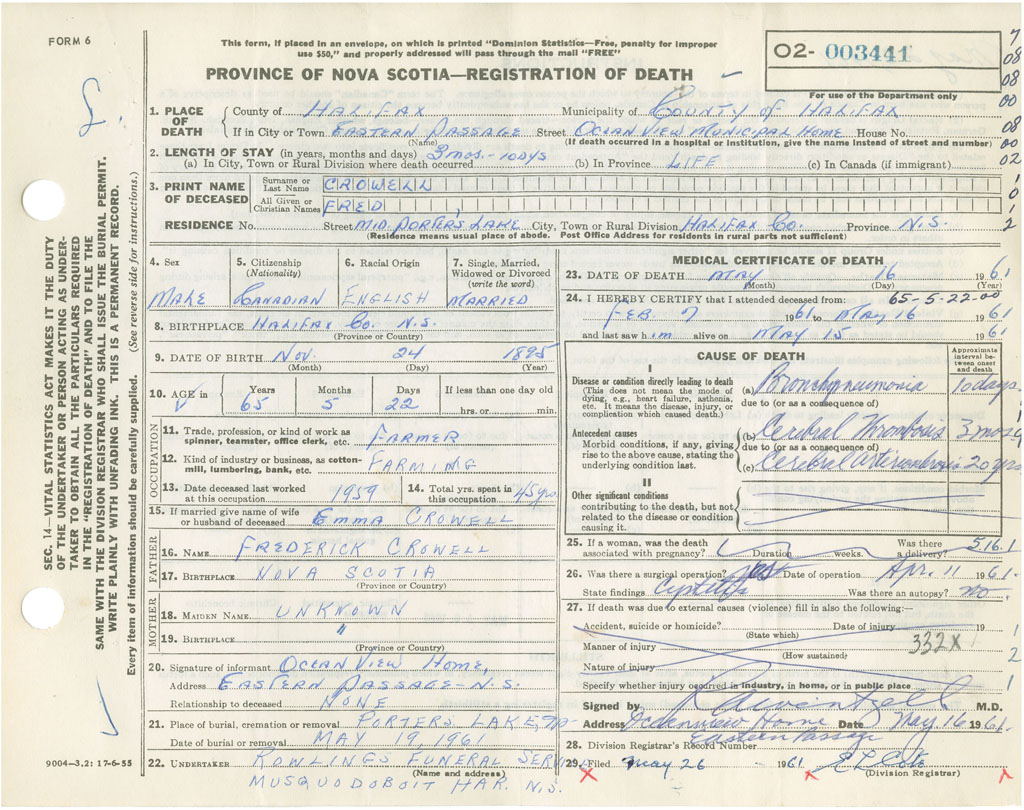 FORM 6
This form, if placed in an envelope, on which is printed "Dominion Statistics—Free, penalty for improper
use $50," and properly addressed will pass through the mail "FREE"
PROVINCE OF NOVA SCOTIA—REGISTRATION OF DEATH
02- 003441
For use of the Department only
7
08
08
00
08
00
02
1
0
1
2
SEC. 14—VITAL STATISTICS ACT MAKES IT THE DUTY
OF THE UNDERTAKER OR PERSON ACTING AS UNDER-
TAKER TO OBTAIN ALL THE PARTICULARS REQUIRED
IN THE "REGISTRATION OF DEATH" AND TO FILE THE
SAME WITH THE DIVISION REGISTRAR WHO SHALL ISSUE THE BURIAL PERMIT.
WRITE PLAINLY WITH UNFADING INK. THIS IS A PERMANENT RECORD.
Every item of information should be carefully supplied. (See reverse side for instructions.)
1. PLACE OF DEATH County of HALIFAX Municipality of COUNTY OF HALIFAX
If in City or Town EASTERN PASSAGE Street OCEAN VIEW MUNICIPAL HOME House No.
(Name) (If death occurred in a hospital or institution, give the name instead of street and number)
2. LENGTH OF STAY (in years, months and days)
(a) In City, Town or Rural Division where death occurred 3 mos. - 10 dys (b) In Province LIFE (c) In Canada (if immigrant)
3. PRINT NAME OF DECEASED Surname or Last Name CROWELL
All Given or Christian Names FRED
RESIDENCE No. Street MID. PORTERS LAKE City, Town or Rural Division HALIFAX CO. Province N.S.
(Residence means usual place of abode. Post Office Address for residents in rural parts not sufficient)
4. Sex 5. Citizenship (Nationality) 6. Racial Origin 7. Single, Married, Widowed or Divorced (write the word)
MALE CANADIAN ENGLISH MARRIED
8. BIRTHPLACE HALIFAX CO. N.S.
(Province or Country)
9. DATE OF BIRTH NOV. 24 1895
(Month) (Day) (Year)
10. AGE in Years Months Days If less than one day old
65 5 22 hrs. or min.
OCCUPATION
11. Trade, profession, or kind of work as spinner, teamster, office clerk, etc. FARMER
12. Kind of industry or business, as cotton-mill, lumbering, bank, etc. FARMING
13. Date deceased last worked at this occupation 1959 14. Total yrs. spent in this occupation 45 yrs
15. If married give name of wife or husband of deceased EMMA CROWELL
FATHER
16. NAME FREDERICK CROWELL
17. BIRTHPLACE NOVA SCOTIA
(Province or Country)
MOTHER
18. MAIDEN NAME UNKNOWN
19. BIRTHPLACE "
(Province or Country)
20. Signature of informant OCEAN VIEW HOME,
Address EASTERN PASSAGE - N.S.
Relationship to deceased NONE
21. Place of burial, cremation or removal PORTERS LAKE,
Date of burial or removal MAY 19, 1961
22. UNDERTAKER ROWLINGS FUNERAL SERVICE
(Name and address)
MUSQUODOBOIT HAR. N.S.
9004—3.2: 17-6-55
MEDICAL CERTIFICATE OF DEATH
23. DATE OF DEATH MAY 16 1961
(Month) (Day) (Year)
24. I HEREBY CERTIFY that I attended deceased from: 65-5-22-00
FEB 7 1961 to MAY 16 1961
and last saw him alive on MAY 15 1961
CAUSE OF DEATH
Approximate interval between onset and death
I
Disease or condition directly leading to death
(This does not mean the mode of dying, e.g., heart failure, asthenia, etc. It means the disease, injury, or complication which caused death.)
(a) Bronchopneumonia 10 days
due to (or as a consequence of)
Antecedent causes
Morbid conditions, if any, giving rise to the above cause, stating the underlying condition last.
(b) Cerebral Thrombosis 3 mos
due to (or as a consequence of)
(c) Cerebral 20 yrs
II
Other significant conditions
contributing to the death, but not related to the disease or condition causing it.
25. If a woman, was the death associated with pregnancy? Duration weeks. Was there a delivery? 516.1
26. Was there a surgical operation? yes Date of operation Apr. 11 1961
State findings Was there an autopsy? no
27. If death was due to external causes (violence) fill in also the following:—
Accident, suicide or homicide? Date of injury 19
(State which)
Manner of injury 332X
(How sustained)
Nature of injury
Specify whether injury occurred in industry, in home, or in public place
Signed by M.D.
Address Oceanview Home Date May 16 1961
Eastern Passage
28. Division Registrar's Record Number
29. Filed May 26 1961
(Division Registrar)